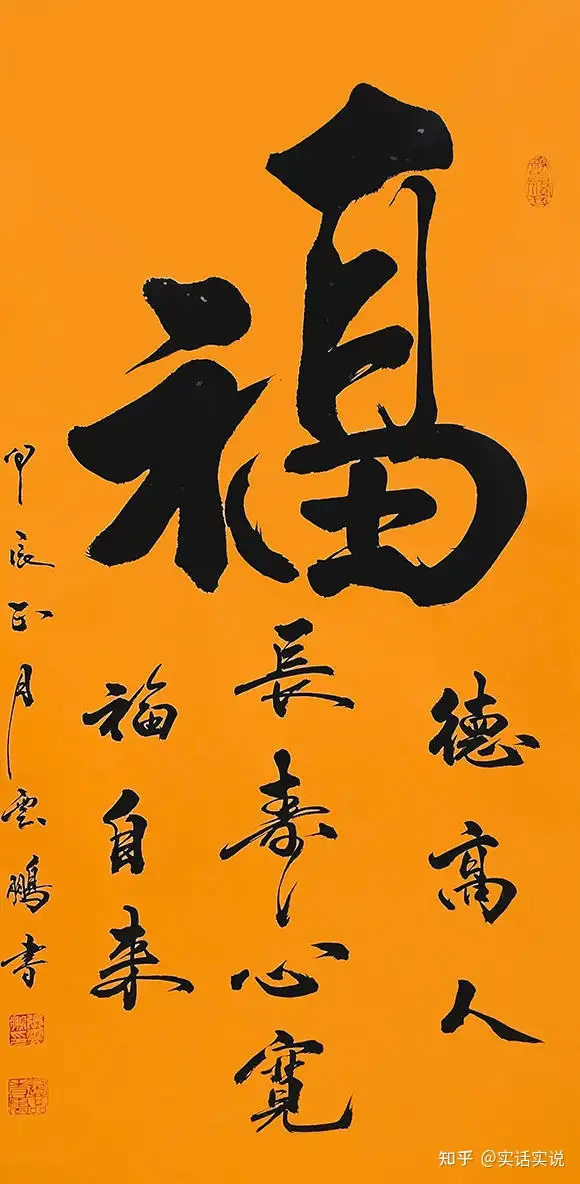 福
德高人
長寿心寬
福自来
甲辰正月雲鵬书
知乎 @实话实说